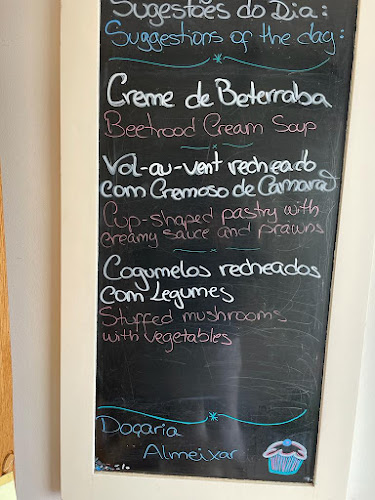 Sugestões do Dia:
Suggestions of the day:
Creme de Beterraba
Beetrood Cream Soup
Vol-au-vent recheado
com Cremoso de Camarão
Cup-shaped pastry with
creamy sauce and prawns
Cogumelos recheados
com Legumes
Stuffed mushrooms
with vegetables
Doçaria
Almeixar